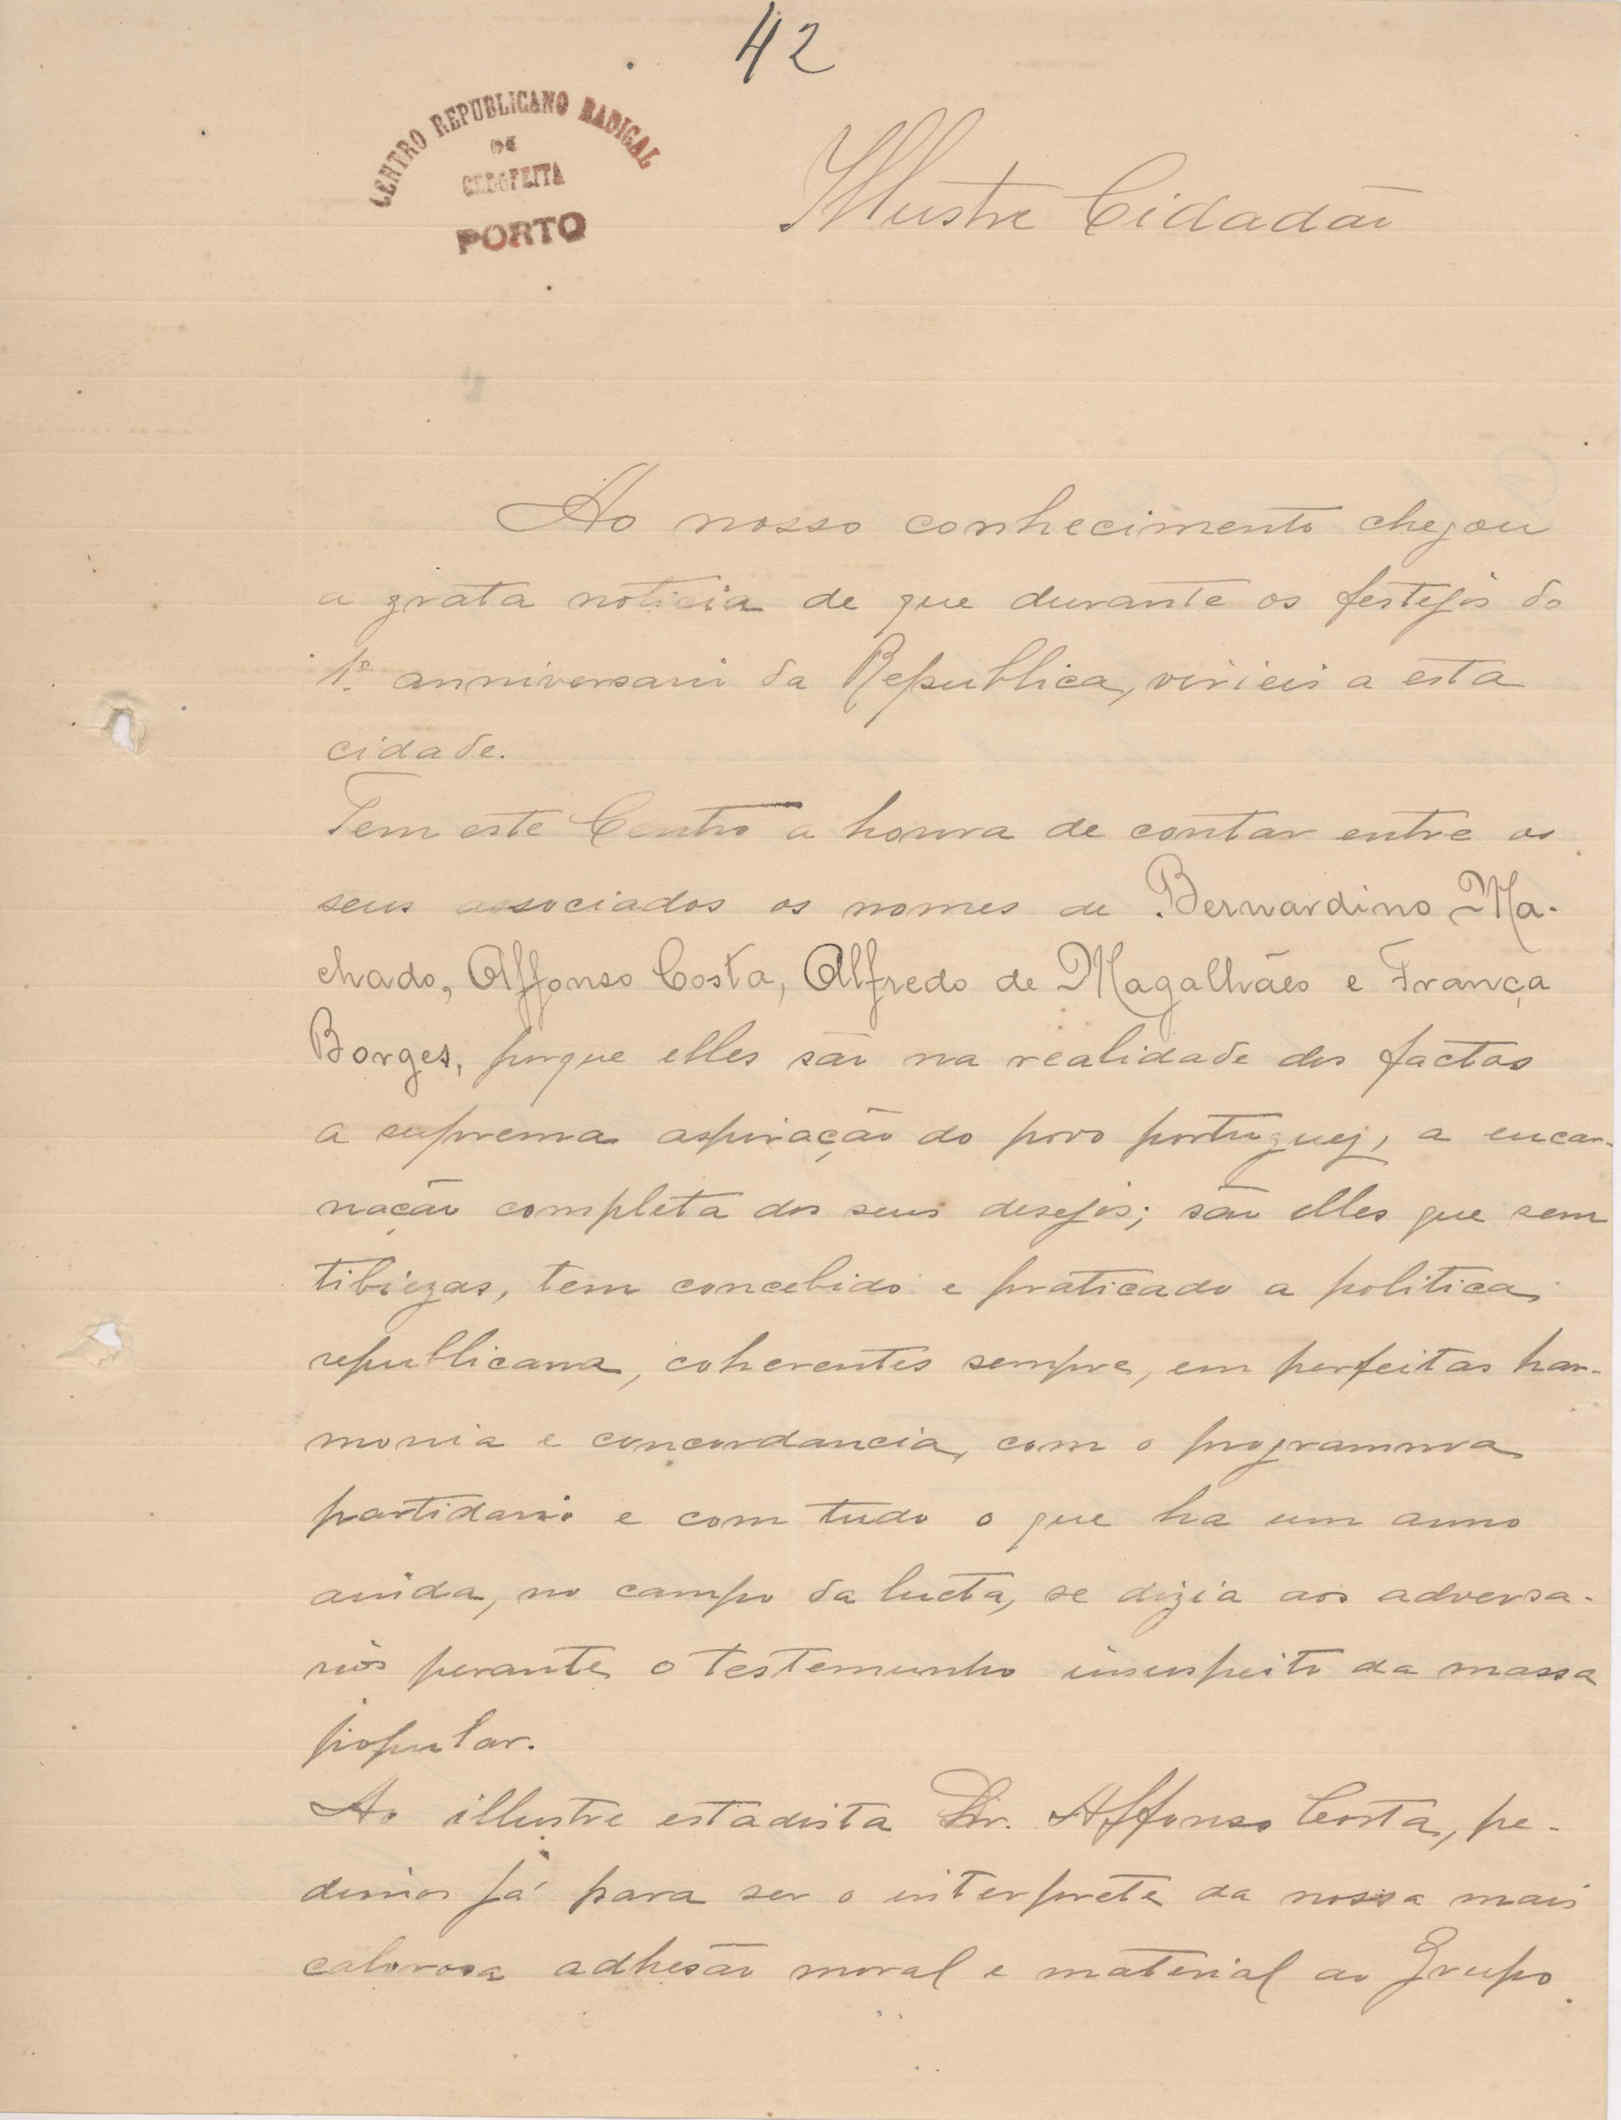 42
CENTRO REPUBLICANO RADICAL
DE
CEDOFEITA
PORTO
Illustre Cidadão
Ao nosso conhecimento chegou
a grata noticia de que durante os festejos do
1º anniversario da Republica, virieis a esta
cidade.
Tem este Centro a honra de contar entre os
seus associados os nomes de Bernardino Ma-
chado, Affonso Costa, Alfredo de Magalhães e França
Borges, porque elles são na realidade dos factos
a suprema aspiração do povo portuguez, a encar-
nação completa dos seus desejos; são elles que sem
tibiezas, tem concebido e praticado a politica
republicana, coherentes sempre, em perfeitas har-
monia e concordancia, com o programma
partidario e com tudo o que ha um anno
ainda, no campo da lucta, se dizia aos adversa-
rios perante o testemunho insuspeito da massa
popular.
Ao illustre estadista Dr. Affonso Costa, pe-
dimos já para ser o interprete da nossa mais
calorosa adhesão moral e material ao Grupo